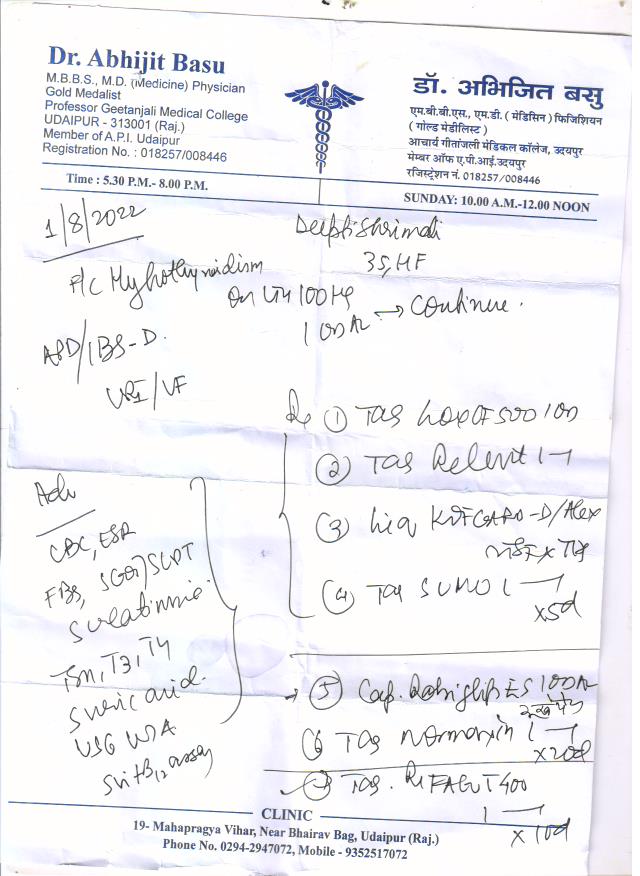 Dr. Abhijit Basu
M.B.B.S., M.D. (Medicine) Physician
Gold Medalist
Professor Geetanjali Medical College
UDAIPUR - 313001 (Raj.)
Member of A.P.I. Udaipur
Registration No. : 018257/008446
डॉ. अभिजित बसु
एम.बी.बी.एस., एम.डी. ( मेडिसिन ) फिजिशियन
( गोल्ड मेडीलिस्ट )
आचार्य गीतांजली मेडिकल कॉलेज, उदयपुर
मेम्बर ऑफ ए.पी.आई.उदयपुर
रजिस्ट्रेशन नं. 018257/008446
Time : 5.30 P.M.- 8.00 P.M.
SUNDAY: 10.00 A.M.-12.00 NOON
1/8/2022
Deepti Shrimali
35, HF
Hypothyroidism
100
Continue.
APD/IBS-D.
URI/VF
Rx ① TAB 500 1OD
② TAB Relent 1
③ Liq -D/Alex
④ Tab SUMO 1
x5d
Adv
CBC, ESR
FBS, SGOT/SGPT
S creatinine.
TSH, T3, T4
S uric acid.
USG W/A
S vit B12 assay
⑤ Cap. ES 1OD
⑥ TAB Normaxin 1
x20d
TAB. RIFAGUT 400
1
x 10d
CLINIC
19- Mahapragya Vihar, Near Bhairav Bag, Udaipur (Raj.)
Phone No. 0294-2947072, Mobile - 9352517072